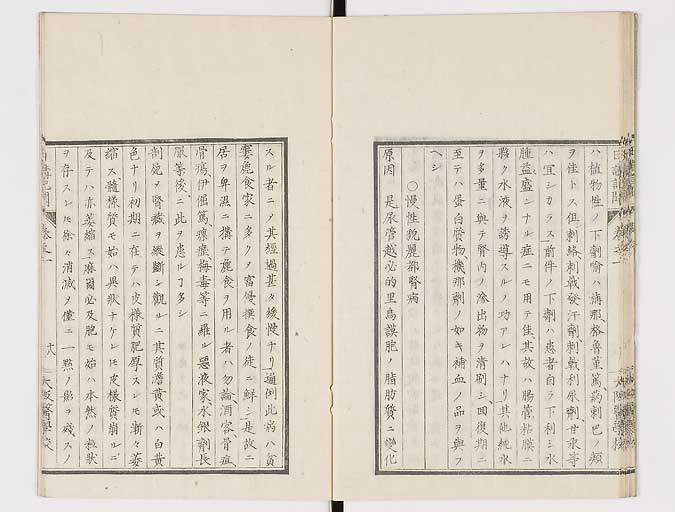 ハ植物性ノ下劑喩ハ満那格魯菫篤、葯刺巴ノ類
ヲ佳トス但刺絡刺戟發汗劑刺戟利尿劑甘汞等
ハ宜シカラス前件ノ下劑ハ患者自ラ下利シ水
腫益盛ンナル症ニモ用テ佳其故ハ腸管粘膜ニ
夥ク水液ヲ誘導スルノ功アレハナリ其他純水
ヲ多量ニ與テ腎内ノ滲出物ヲ清刷シ回復期ニ
至テハ蛋白質物、機那劑ノ如キ補血ノ品ヲ與フ
ヘシ
〇慢性貌麗都腎病
原因 是尿管越必的里烏謨胞ノ脂肪質ニ變化
スル者ニノ其經過甚タ緩慢ナリ通例此病ハ貧
窶麁食家ニ多クノ富優撰食ノ徒ニ鮮シ是故ニ
居ヲ卑濕ニ搆テ麁食ヲ用ル者ハ勿論酒客骨疽
骨瘍伊倔篤瘰癧、梅毒等ニ羅ル惡液家、水銀劑長
服等後ニ此ヲ患ル丁多シ
剖屍ヲ腎臓ヲ縱斷シ觀ルニ其質澹黄或ハ白黄
色ナリ初期ニ在テハ皮樣質肥厚スレモ漸々萎
縮ス髄樣質モ始ハ異狀ナケレモ皮樣質崩ルヽニ
及テハ亦萎縮ス麻爾必及胞モ始ハ本然ノ粒狀
ヲ存スレモ徐々消滅ヲ僅ニ一點ノ影ヲ殘スノ
十八
大阪醫學校